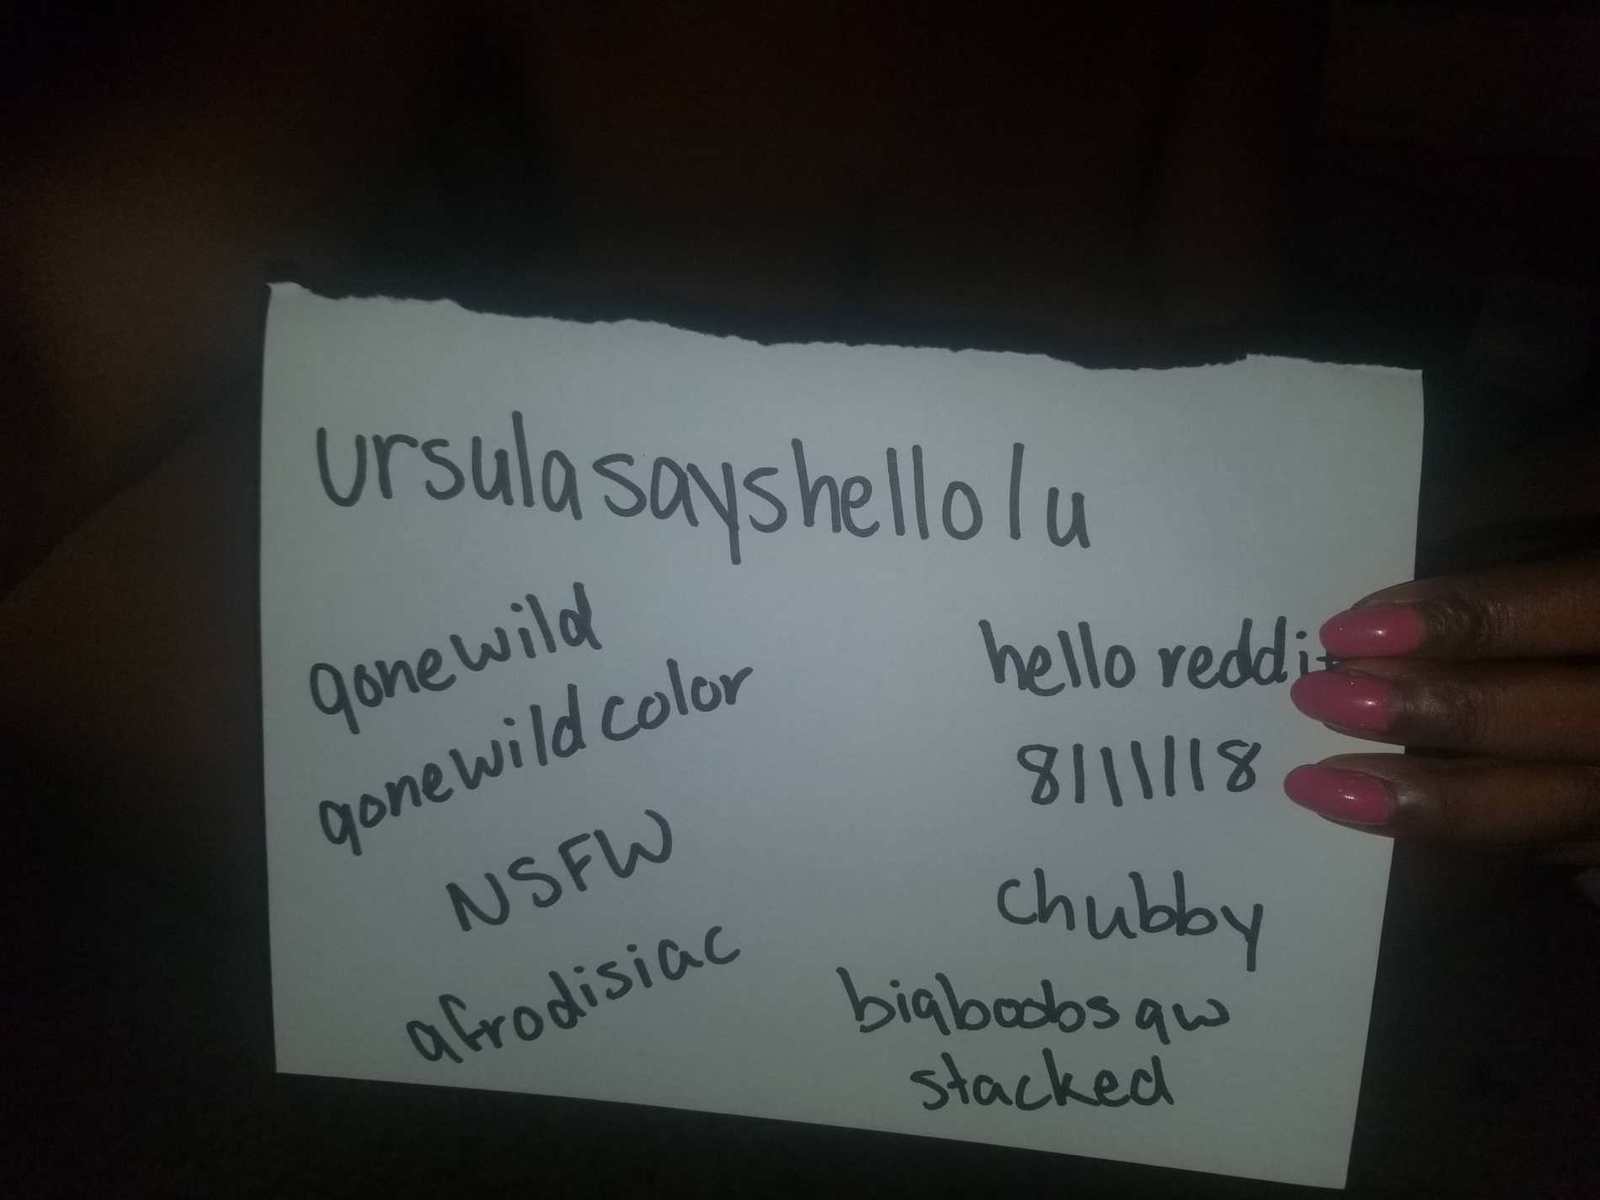 ursulasayshello/u
gonewild
gonewildcolor
NSFW
afrodisiac
hello reddit
8/11/18
chubby
bigboobsgw
stacked